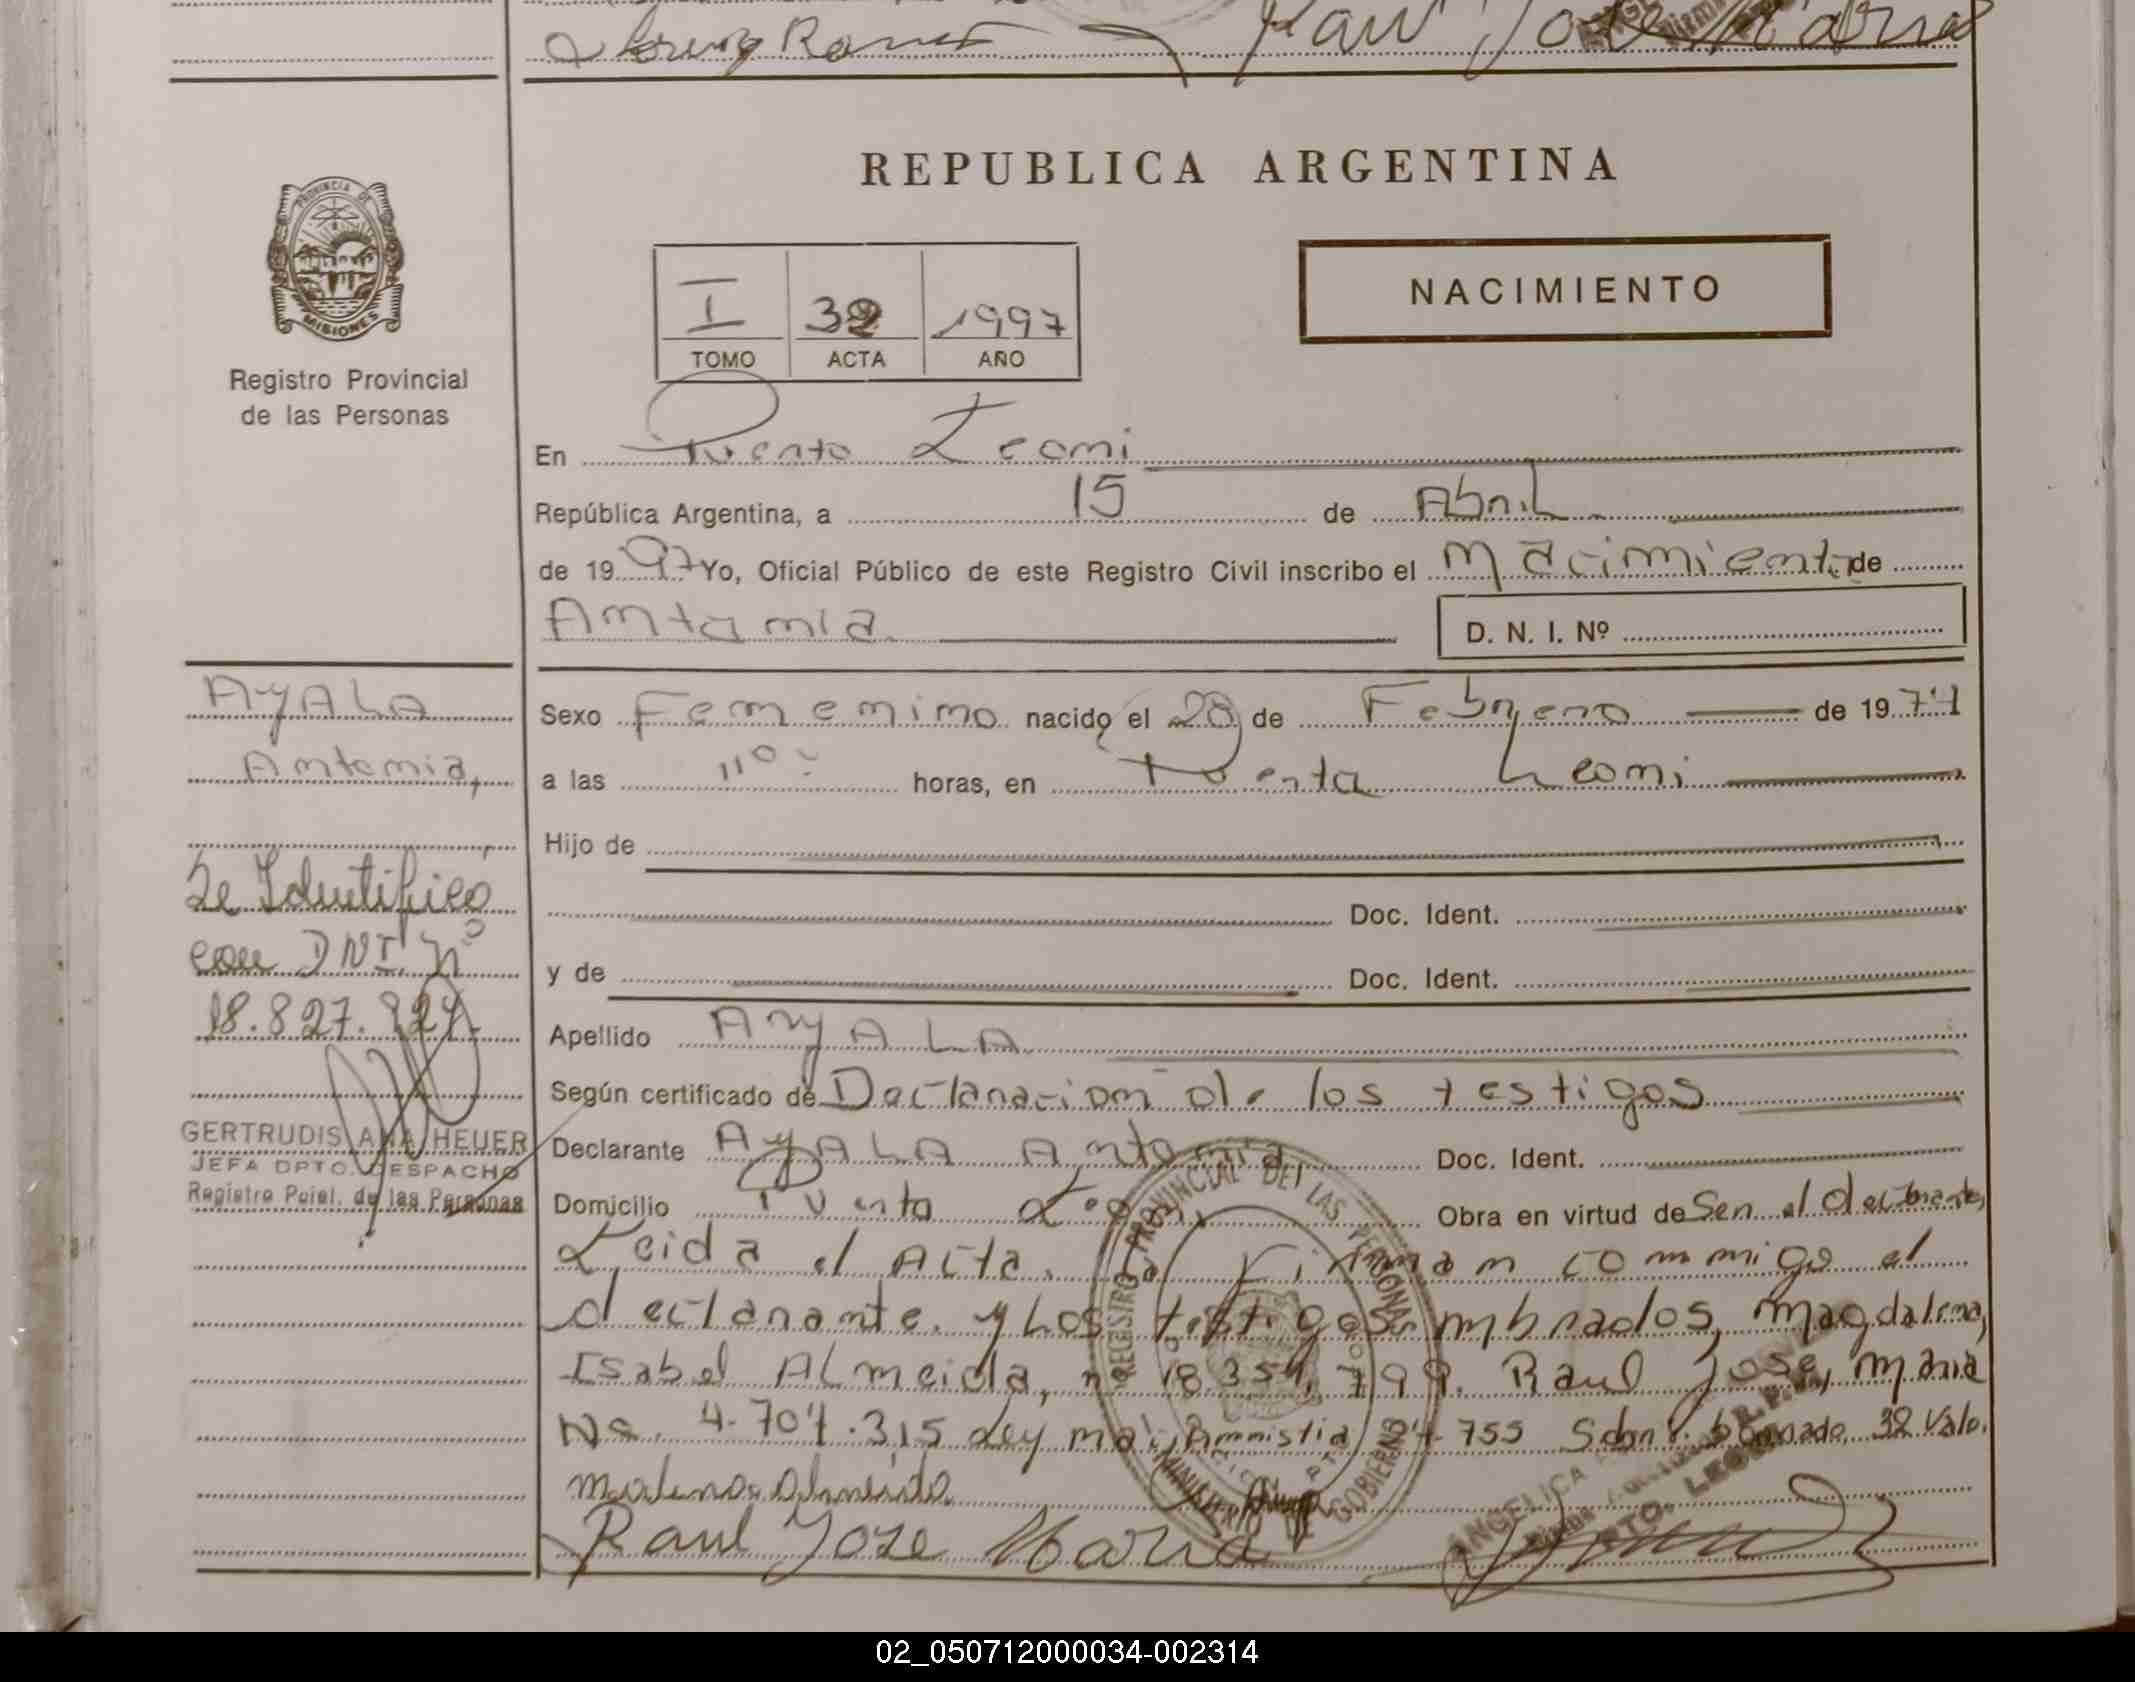 Raul Jose Maria
PROVINCIA DE
MISIONES
Registro Provincial
de las Personas
REPUBLICA ARGENTINA
NACIMIENTO
I 32 1997
TOMO ACTA AÑO
En Puerto Leoni
República Argentina, a 15 de Abril
de 19 97 Yo, Oficial Público de este Registro Civil inscribo el Nacimiento de
Antonia
D. N. I. Nº
AYALA
Antonia
Se Identifico
con DNI. Nº
18.827.924
GERTRUDIS ANA HEUER
JEFA DPTO. DESPACHO
Registro Pcial. de las Personas
Sexo Femenino nacido el 28 de Febrero de 19 71
a las 11º horas, en Puerto Leoni
Hijo de
Doc. Ident.
y de Doc. Ident.
Apellido AYALA
Según certificado de Declaracion de los testigos
Declarante AYALA Antonia Doc. Ident.
Domicilio Puerto Leoni Obra en virtud de Ser el declarante
Leida el Acta. La Firman conmigo el
declarante y Los testigos mbrados, Magdalena
Isabel ALmeida, nº 18.351.799. Raul Jose, Maria
No. 4.704.315 Ley Amnistia 755 32 Vale.
Raul Jose Maria
REGISTRO PROVINCIAL DE LAS PERSONAS
MINISTERIO DE GOBIERNO
ANGELICA
PTO. LEONI
02_050712000034-002314